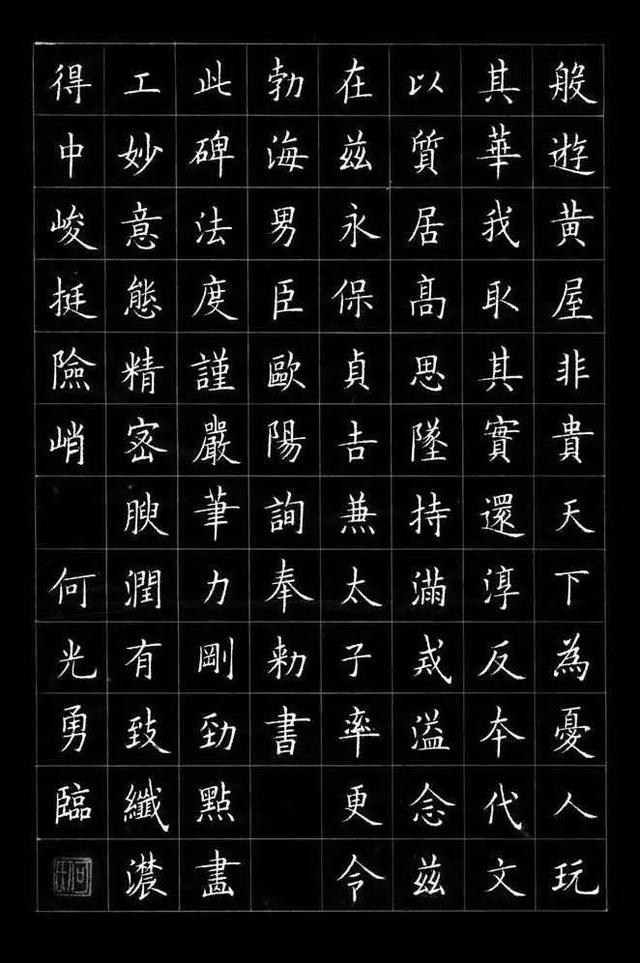 般遊黃屋非貴天下為憂人玩
其華我取其實還淳反本代文
以質居高思墜持滿戒溢念茲
在茲永保貞吉兼太子率更令
勃海男臣歐陽詢奉勅書
此碑法度謹嚴筆力剛勁點畫
工妙意態精密腴潤有致纖濃
得中峻挺險峭 何光勇臨